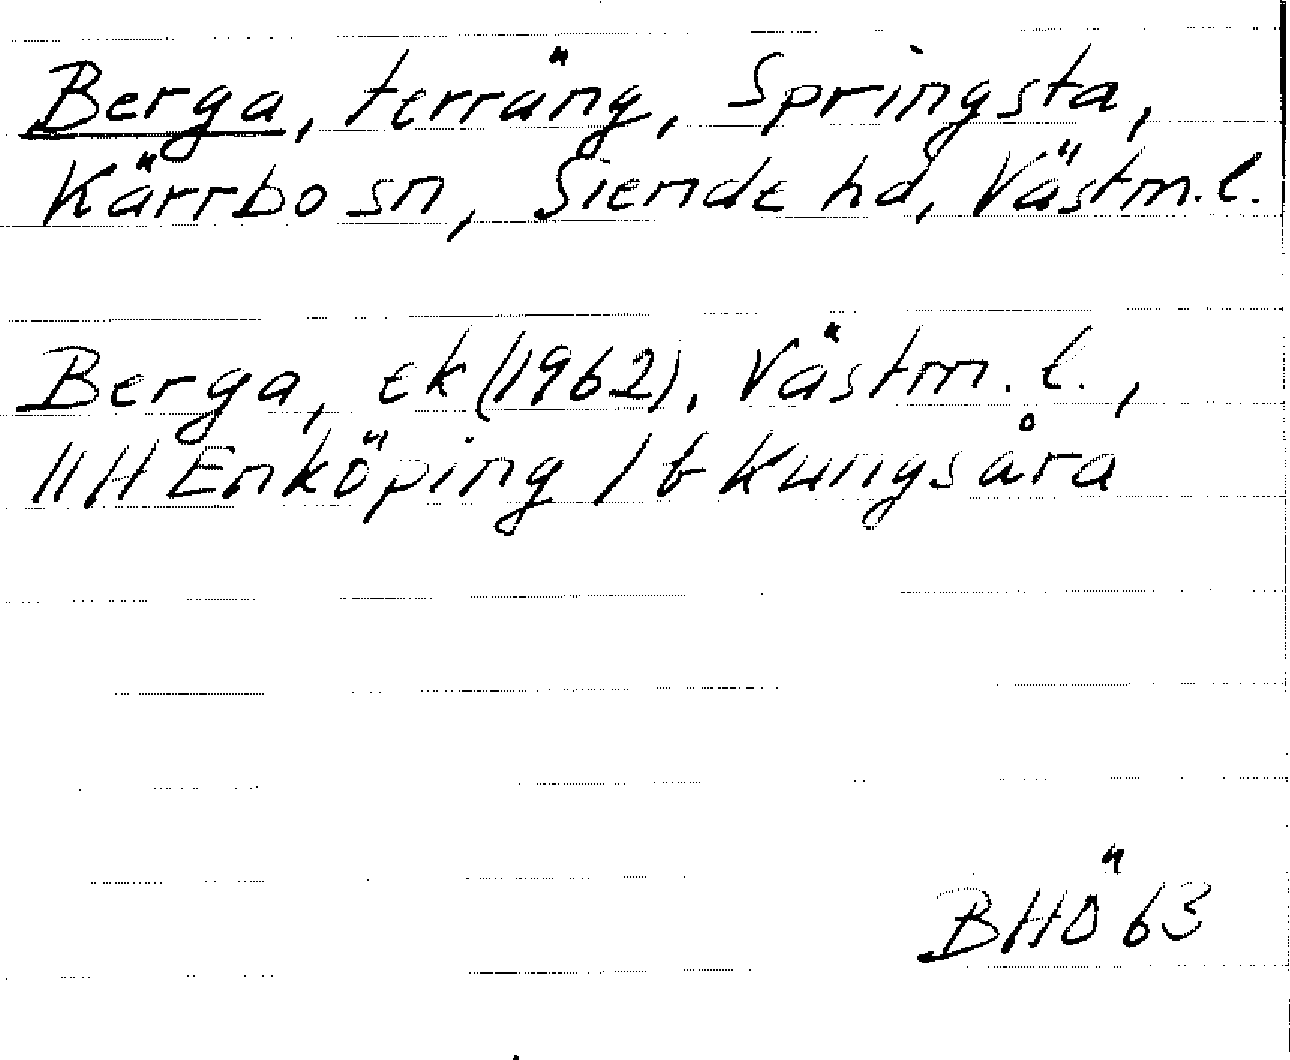 Berga, terräng, Springsta,
Kärrbo sn, Siende hd, Västm.l.
Berga, ek (1962), Västm.l.,
11H Enköping 1 b Kungsåra
BHÖ 63